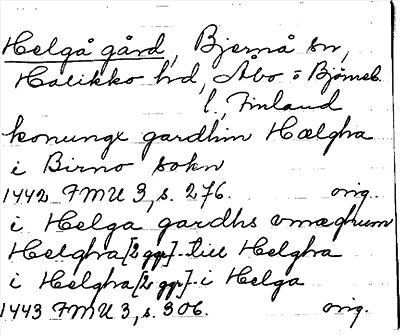 Helgå gård, Bjernå sn,
Halikko hd, Åbo o Björneb.
l, Finland
konungx gardhin Hælgha
i Birno sokn
1442 FMU 3, s. 276. orig.
i Helga gardhs vmæghum
Helgha [2 ggr] - till Helgha
i Helgha [2 ggr] - i Helga
1443 FMU 3, s. 306. orig.